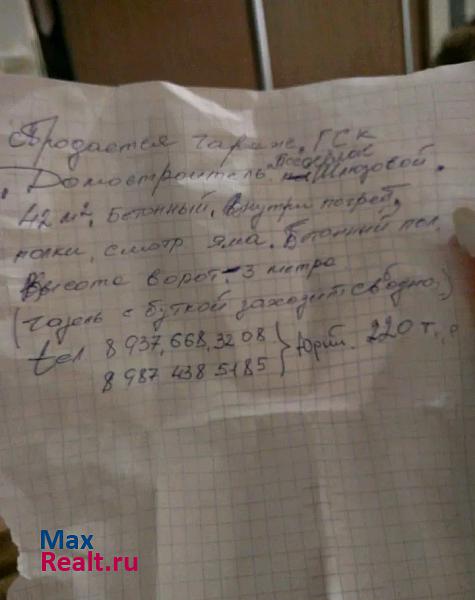 Продается гараж. ГСК
Домостроитель. Шлюзовой.
42 м², Бетонный, Внутри погреб,
полки, смотр яма. Бетонный пол.
Высота ворот - 3 метра
(газель с буткой заходит свободно.)
tel 8 937,668,32 08
8 987 438 5185 } Юрий. 220 т.,
Max
Realt.ru